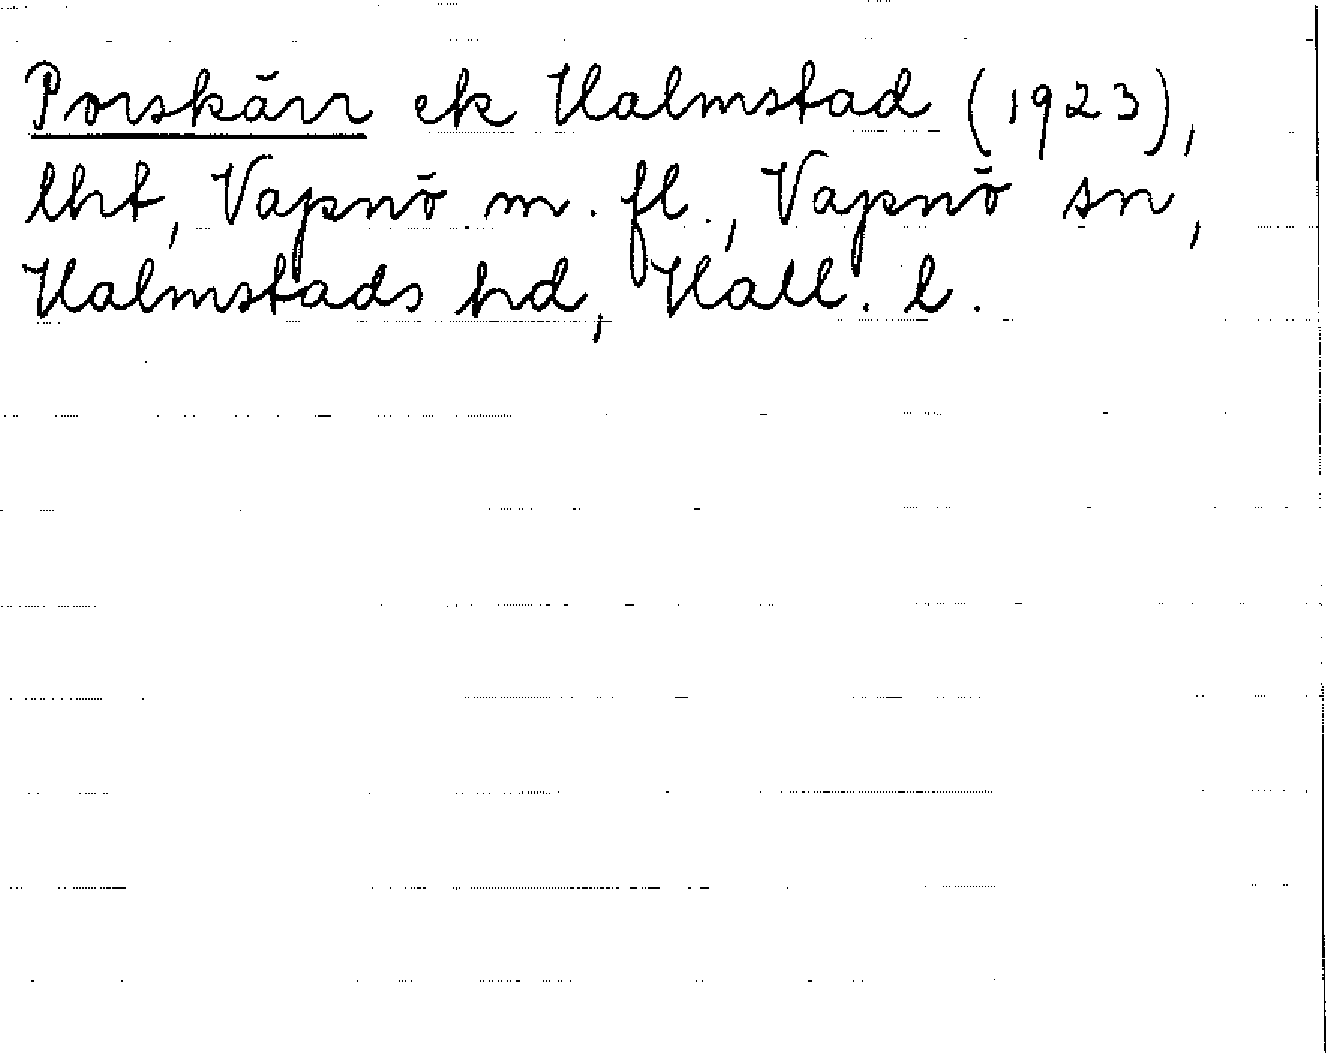 Porskärr ek Halmstad (1923),
lht, Vapnö m. fl., Vapnö sn,
Halmstads hd, Hall. l.